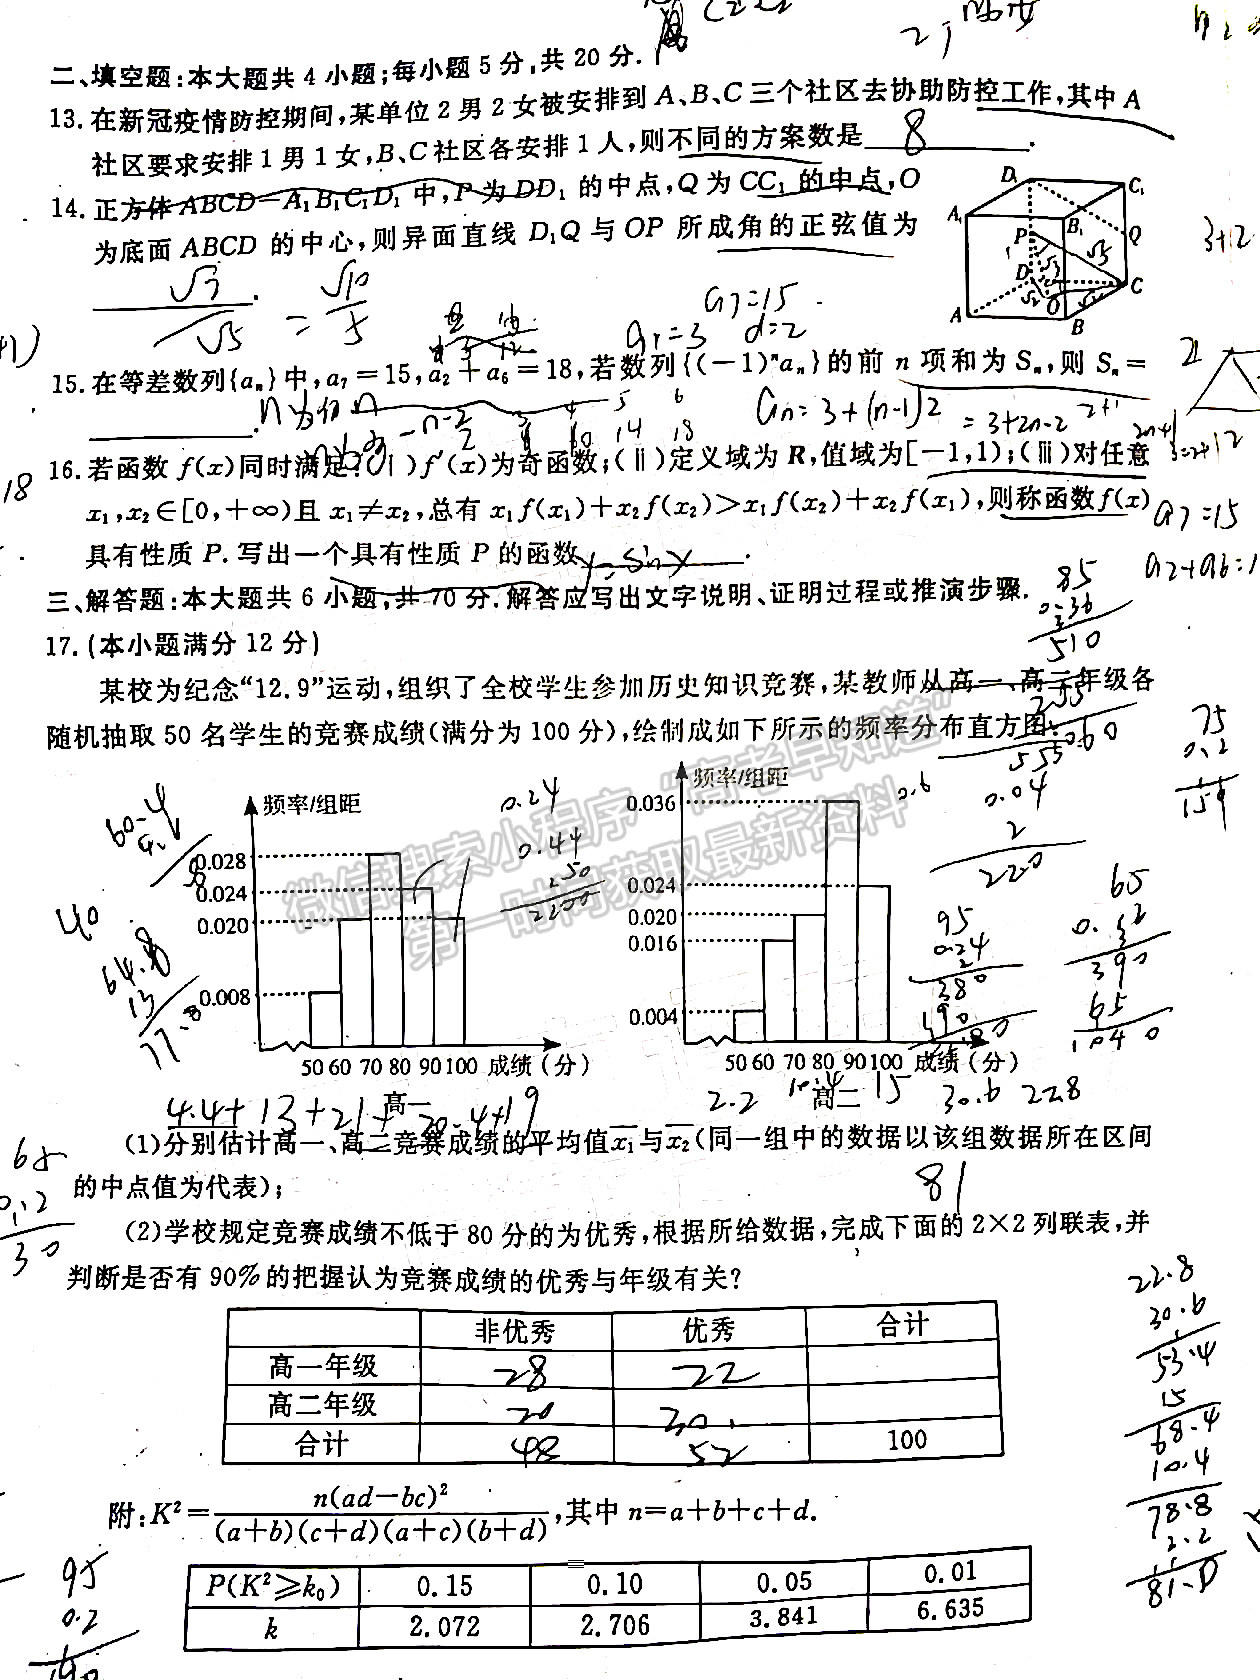 二、填空题:本大题共 4 小题;每小题 5 分,共 20 分.
13. 在新冠疫情防控期间,某单位 2 男 2 女被安排到 A、B、C 三个社区去协助防控工作,其中 A
社区要求安排 1 男 1 女,B、C 社区各安排 1 人,则不同的方案数是 8 .
14. 正方体 ABCD-A₁B₁C₁D₁ 中,P 为 DD₁ 的中点,Q 为 CC₁ 的中点,O
为底面 ABCD 的中心,则异面直线 D₁Q 与 OP 所成角的正弦值为
.
D₁ C₁
A₁ B₁
P Q
D C
O
A B
√10/5
a7=15
d=2
15. 在等差数列{aₙ}中,a₇=15,a₂+a₆=18,若数列{(-1)ⁿaₙ}的前 n 项和为 Sₙ,则 Sₙ=
.
an=3+(n-1)2 =3+2n-2
16. 若函数 f(x)同时满足:(ⅰ)f(x)为奇函数;(ⅱ)定义域为 R,值域为[-1,1);(ⅲ)对任意
x₁,x₂∈[0,+∞)且 x₁≠x₂,总有 x₁f(x₁)+x₂f(x₂)>x₁f(x₂)+x₂f(x₁),则称函数f(x)
具有性质 P. 写出一个具有性质 P 的函数 y=sinx .
a7=15
三、解答题:本大题共 6 小题,共 70 分. 解答应写出文字说明、证明过程或推演步骤.
17. (本小题满分 12 分)
某校为纪念“12.9”运动,组织了全校学生参加历史知识竞赛,某教师从高一、高二年级各
随机抽取 50 名学生的竞赛成绩(满分为 100 分),绘制成如下所示的频率分布直方图:
频率/组距
0.028
0.024
0.020
0.008
50 60 70 80 90 100 成绩(分)
高一
频率/组距
0.036
0.024
0.020
0.016
0.004
50 60 70 80 90 100 成绩(分)
高二
微信搜索小程序“高考早知道”
第一时间获取最新资料
0.24
0.44
2200
2.2
15
30.6 22.8
(1)分别估计高一、高二竞赛成绩的平均值x̄₁与x̄₂(同一组中的数据以该组数据所在区间
的中点值为代表);
81
(2)学校规定竞赛成绩不低于 80 分的为优秀,根据所给数据,完成下面的 2×2 列联表,并
判断是否有 90%的把握认为竞赛成绩的优秀与年级有关?
非优秀 优秀 合计
高一年级 28 22
高二年级 20 30
合计 48 52 100
22.8
30.6
53.4
15
68.4
10.4
78.8
2.2
81.0
附:K²=n(ad-bc)²/(a+b)(c+d)(a+c)(b+d),其中 n=a+b+c+d.
P(K²≥k₀) 0.15 0.10 0.05 0.01
k 2.072 2.706 3.841 6.635
95
0.2